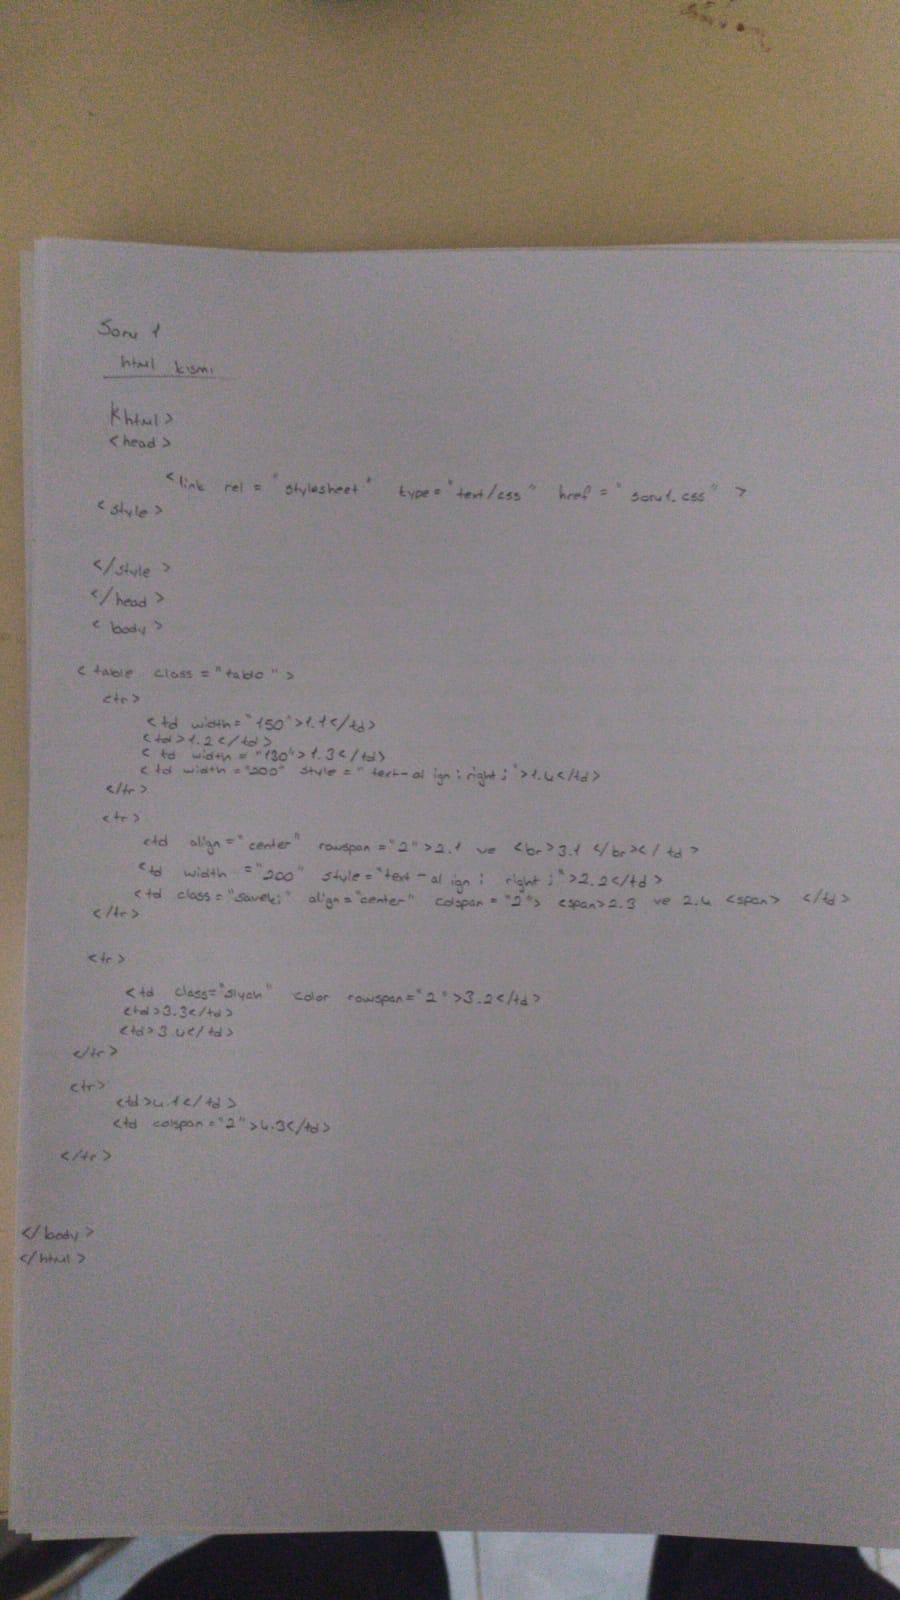 Soru 1
html kısmı
<html>
<head>
<link rel = "stylesheet" type="text/css" href = "soru1.css" >
<style>
</style>
</head>
<body>
<table class = "tablo">
<tr>
<td width="150">1.1</td>
<td>1.2</td>
<td width = "130">1.3</td>
<td width = "200" style = "text-align:right;">1.4</td>
</tr>
<tr>
<td align="center" rowspan="2">2.1 ve 3.1 </br></td>
<td width ="200" style="text-align: right;">2.2</td>
<td class="saveki" align="center" colspan = "2"> <span>2.3 ve 2.4 <span> </td>
</tr>
<tr>
<td class="siyah" color rowspan="2">3.2</td>
<td>3.3</td>
<td>3.4</td>
</tr>
<tr>
<td>4.1</td>
<td colspan="2">4.3</td>
</tr>
</body>
</html>